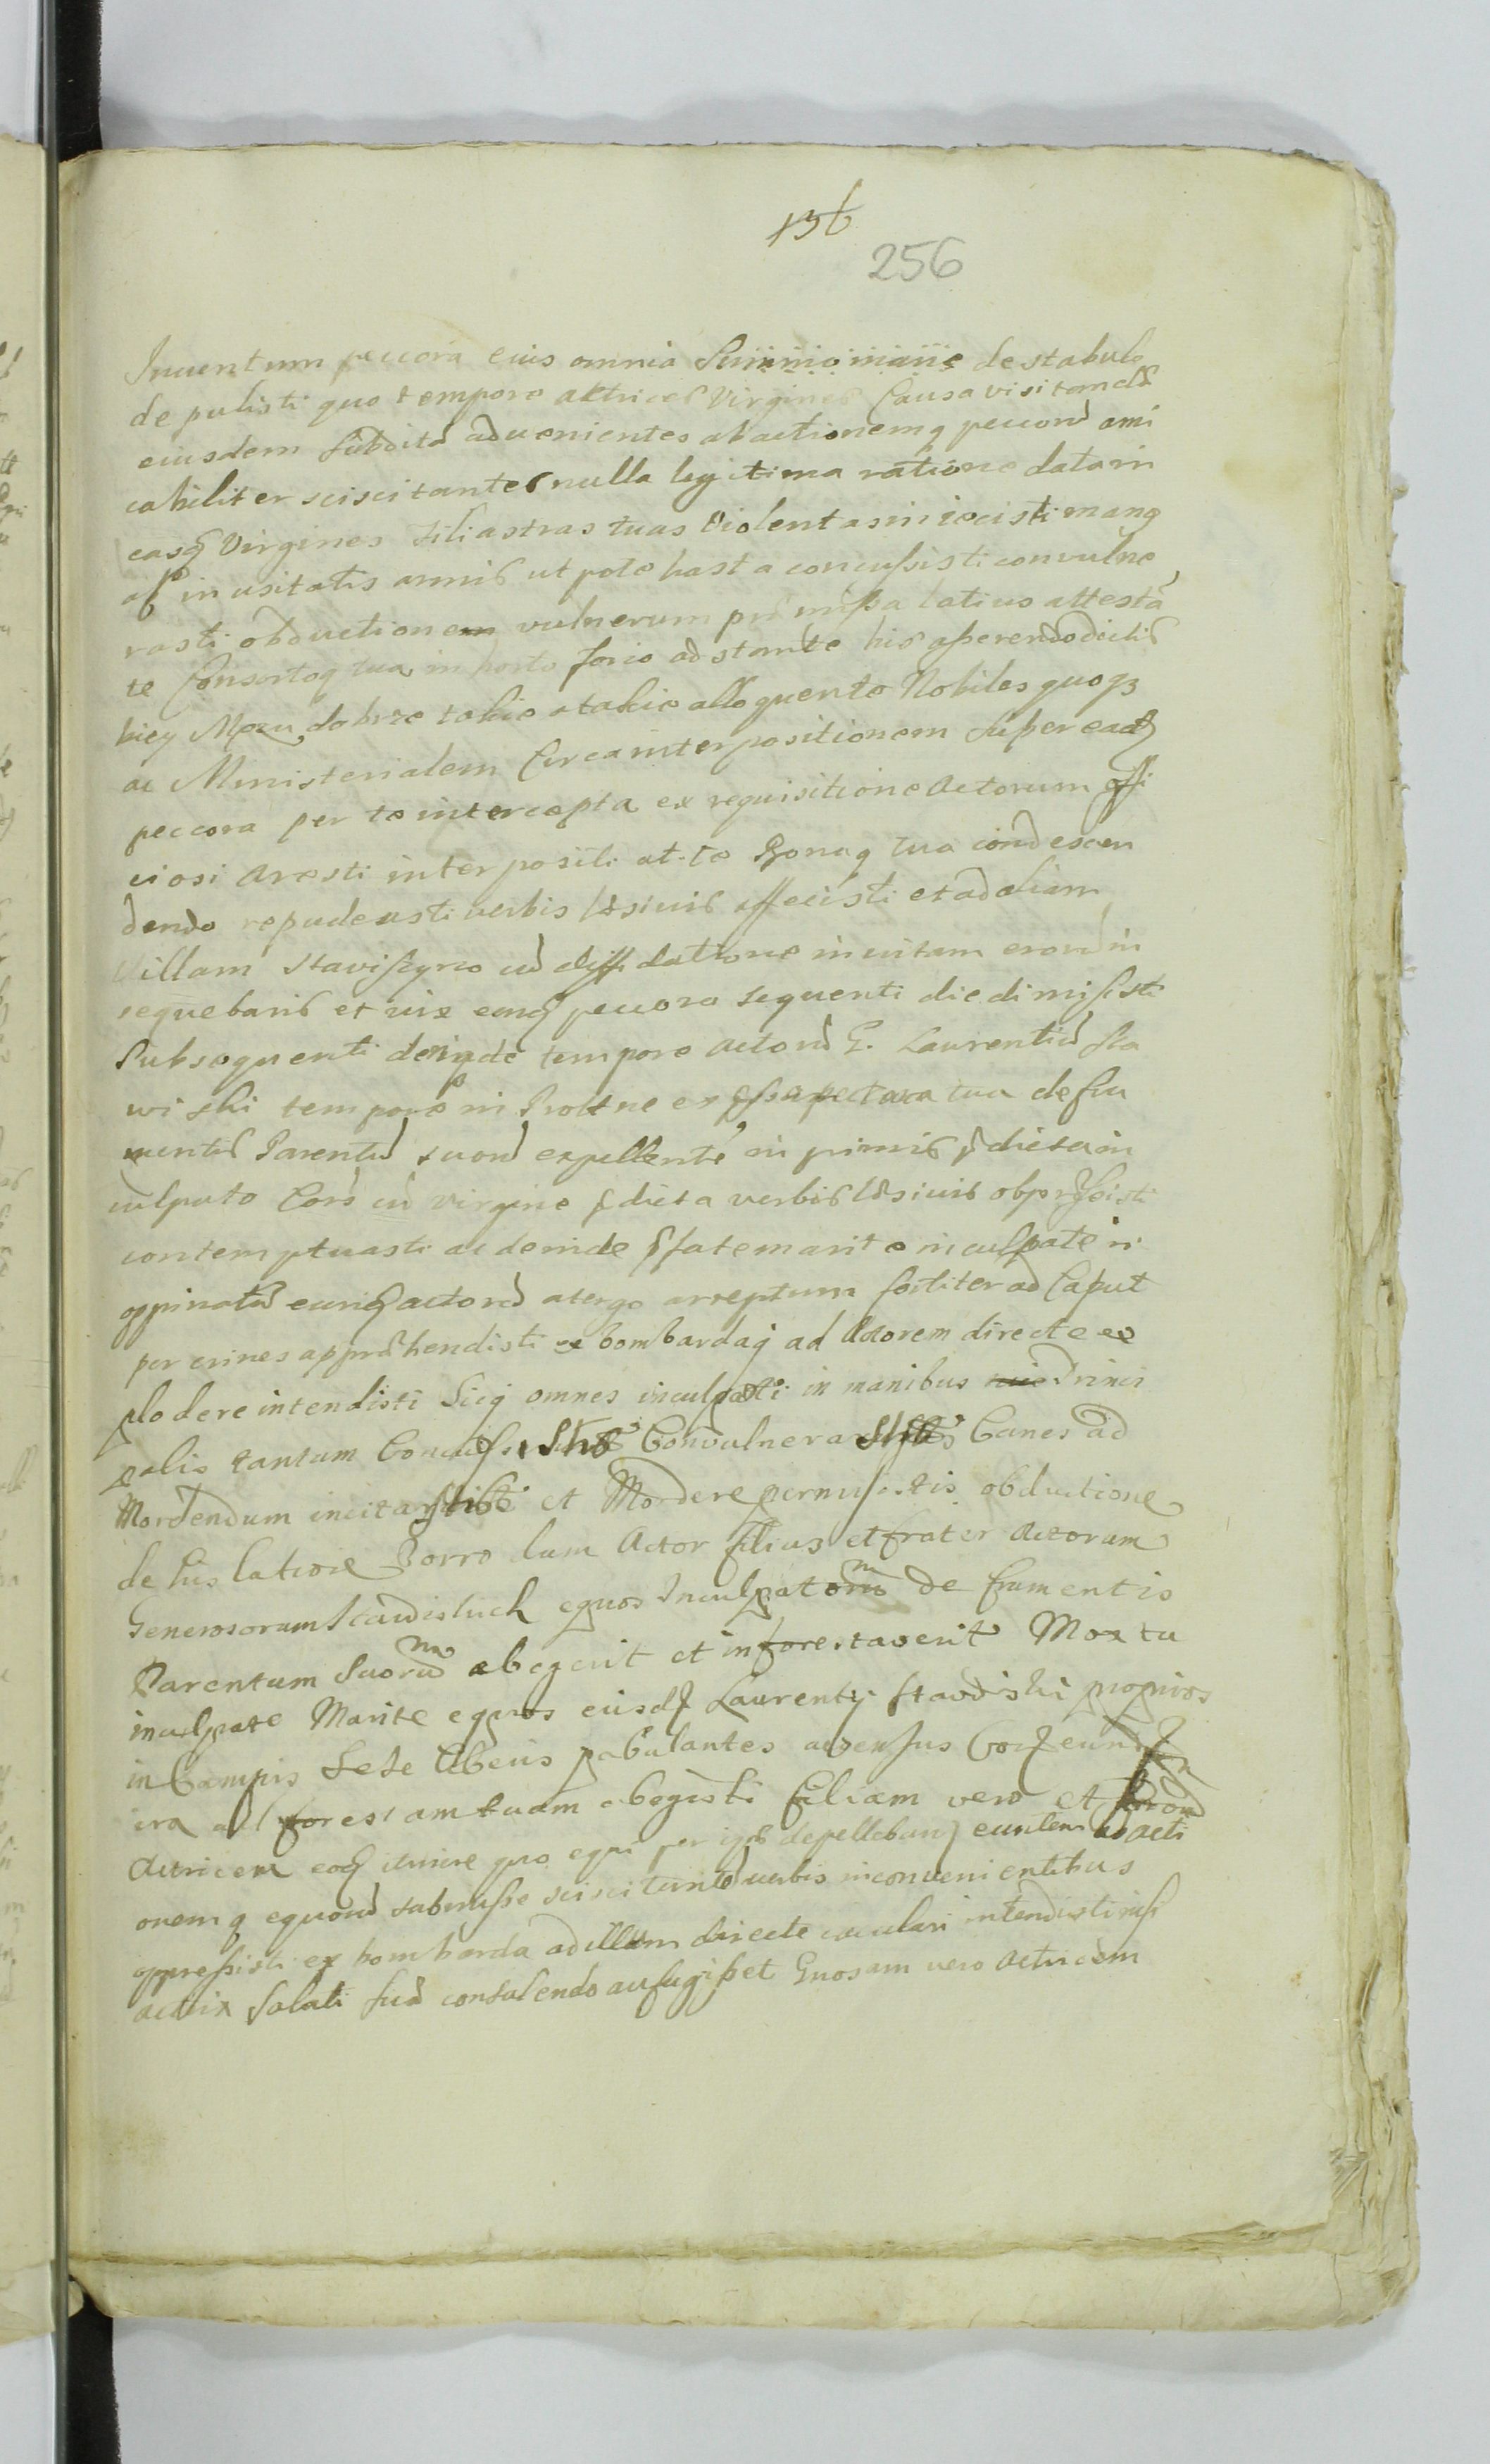 136
256
Inventum peccora eius omnia Summo mane de stabulo
de pulisti quo tempore actrices Virgines Causa visitandi
eiusdem Subdita advenientes abactionemq peccord ami
cabiliter sciscitantes nulla legitima ratione data in
easq Virgines filiastras tuas Violentas iniecisti manq
ass in usitatis armis ut pote hasta concussisti convulne
rasti obductionem vulnerum pr missa latius attesta
te Consorteq tua in horto forio adstante his asserendo dictis
biey Mezu dobrze takie a takie alloquente Nobiles quoqz
ac Ministerialem Circa interpositionem super eadz
peccora per te intercepta ex requisitione Actorum offi
ciosi Aresti interpositi at te Bonaq tua condescen
dendo repudeasti verbis lesivis affecisti et ad aliam
Villam cu diffidatione in
sequebaris et vix eaq peccora sequenti die dimisisti
Subsequenti deinde tempore Actord G. Laurentid Sta
wiski tempore in pectora tua de fru
mentis Parentu suord expellente in primis dicta in
culpato Coro cu virgine dicta verbis lesivis obpressisti
contemptuasti ac deinde fate marite inculpate in
oppinatd eunq actord atergo arreptum fortiter ad Caput
per crines apprehendisti ex bombardaq ad Actorem directe ex
plodere intendisti Sicq omnes inculpati in manibus Princi
palis tantum Convulnera Canes ad
Mordendum incita et Mordere permisistis obductione
de Porro dum Actor filius et frater Actorum
Generosorum Stawiskich equos Inculpatorum de frumentis
Parentum Suorum abegerit et inforestaverit Mox tu
inculpate Marite equos eiusdz Laurentij Stawiski proprios
in Campis Sese liberis pabulantes adversus
ira ad forestam tuam abegisti filiam vero et
Actricem eoq itinere quo equi per depellebant euntem abacti
onemq equord submisse sciscitantd verbis inconvenientibus
oppressisti ex bombarda ad illam directe iaculari intendisti nisi
actrix Saluti sud consulendo aufugisset Gnosam vero Actricem